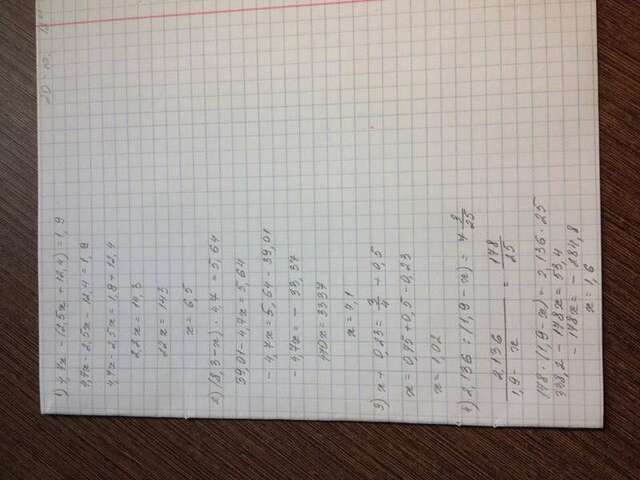 1) 4,7x - (2,5x + 12,4) = 1,9
4,7x - 2,5x - 12,4 = 1,9
4,7x - 2,5x = 1,9 + 12,4
2,2x = 14,3
22x = 143
x = 6,5
2) (8,3 - x) · 4,7 = 5,64
39,01 - 4,7x = 5,64
- 4,7x = 5,64 - 39,01
- 4,7x = - 33,37
470x = 3337
x = 7,1
3) x + 0,23 = 3/4 + 0,5
x = 0,75 + 0,5 - 0,23
x = 1,02
4) 2,136 : (1,9 - x) = 7 3/25
2136/1,9 - x = 178/25
178 · (1,9 - x) = 2,136 · 25
338,2 - 178x = 53,4
- 178x = - 284,8
x = 1,6